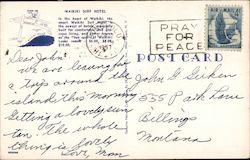 WAIKIKI SURF HOTEL
In the heart of Waikiki, the
PRAY
FOR
PEACE
POST CARD
Dear John:
We are leaving for
a trip around the
island this morning
Getting a lovely sun
tan. The whole
thing is lovely
Love, Mom
John G. Geiken
535 Park Lane
Billings
Montana